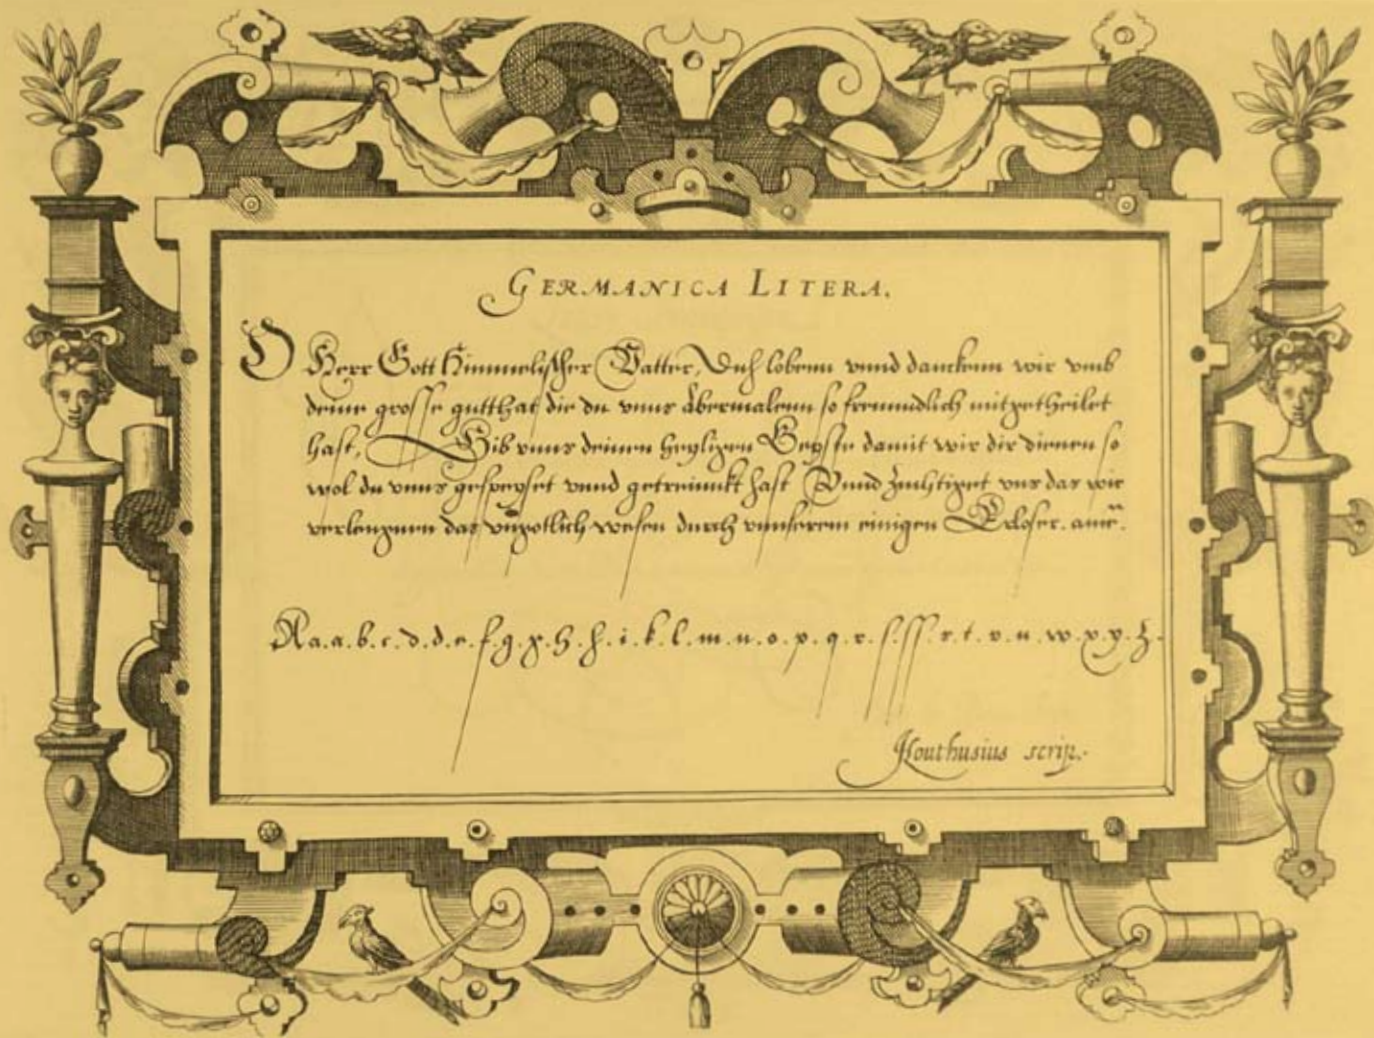 GERMANICA LITERA.
O Herr Gott Himmelischer Vatter, Dich lobenn vnnd danckenn wir vmb
deine grosse gutthat die du vnns abermalenn so freundlich mitgetheilet
hast, Gib vnns deinen heyligen Geyste damit wir dir dienen so
wol du vnns gespeyset vnnd getrennckt hast Vnnd zuchtiget vns das wir
verleugnen das vngotlich wesen durch vnnserem einigen Erloser. amē.
Aa.a.b.c.d.d.e.f.g.g.h.h.i.k.l.m.n.o.p.q.r.s.ss.s.t.v.u.w.x.y.z.
Houthusius scrip.